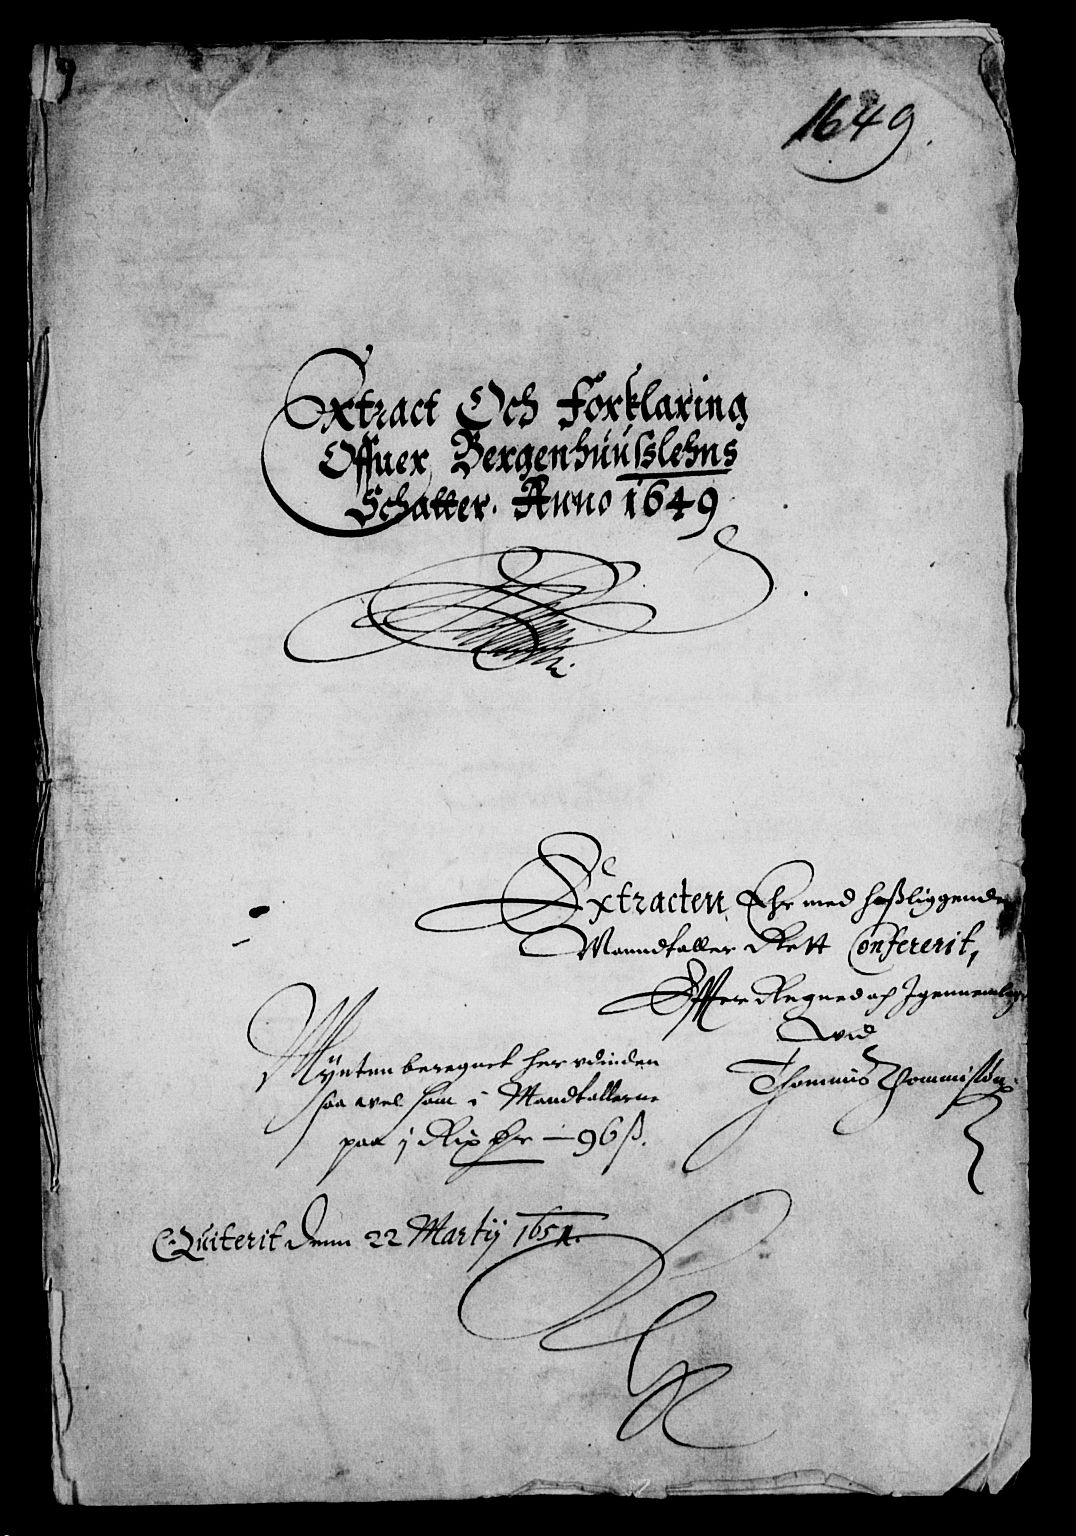 1649.
Extract Och Forklaring
Offuer Bergenhuusslehns
Schatter. Anno 1649
Extracten Ehr med hoßliggende
Manndtaller Rett Confererit,
Effter Regned och Igennemlagt
ved
Thommis Thommisøn
Mÿnten beregnet her vdinden
saa vel som i Mandtallerne
paa j Rix dr — 96 ß.
Quiterit Denn 22 Martij 1651.